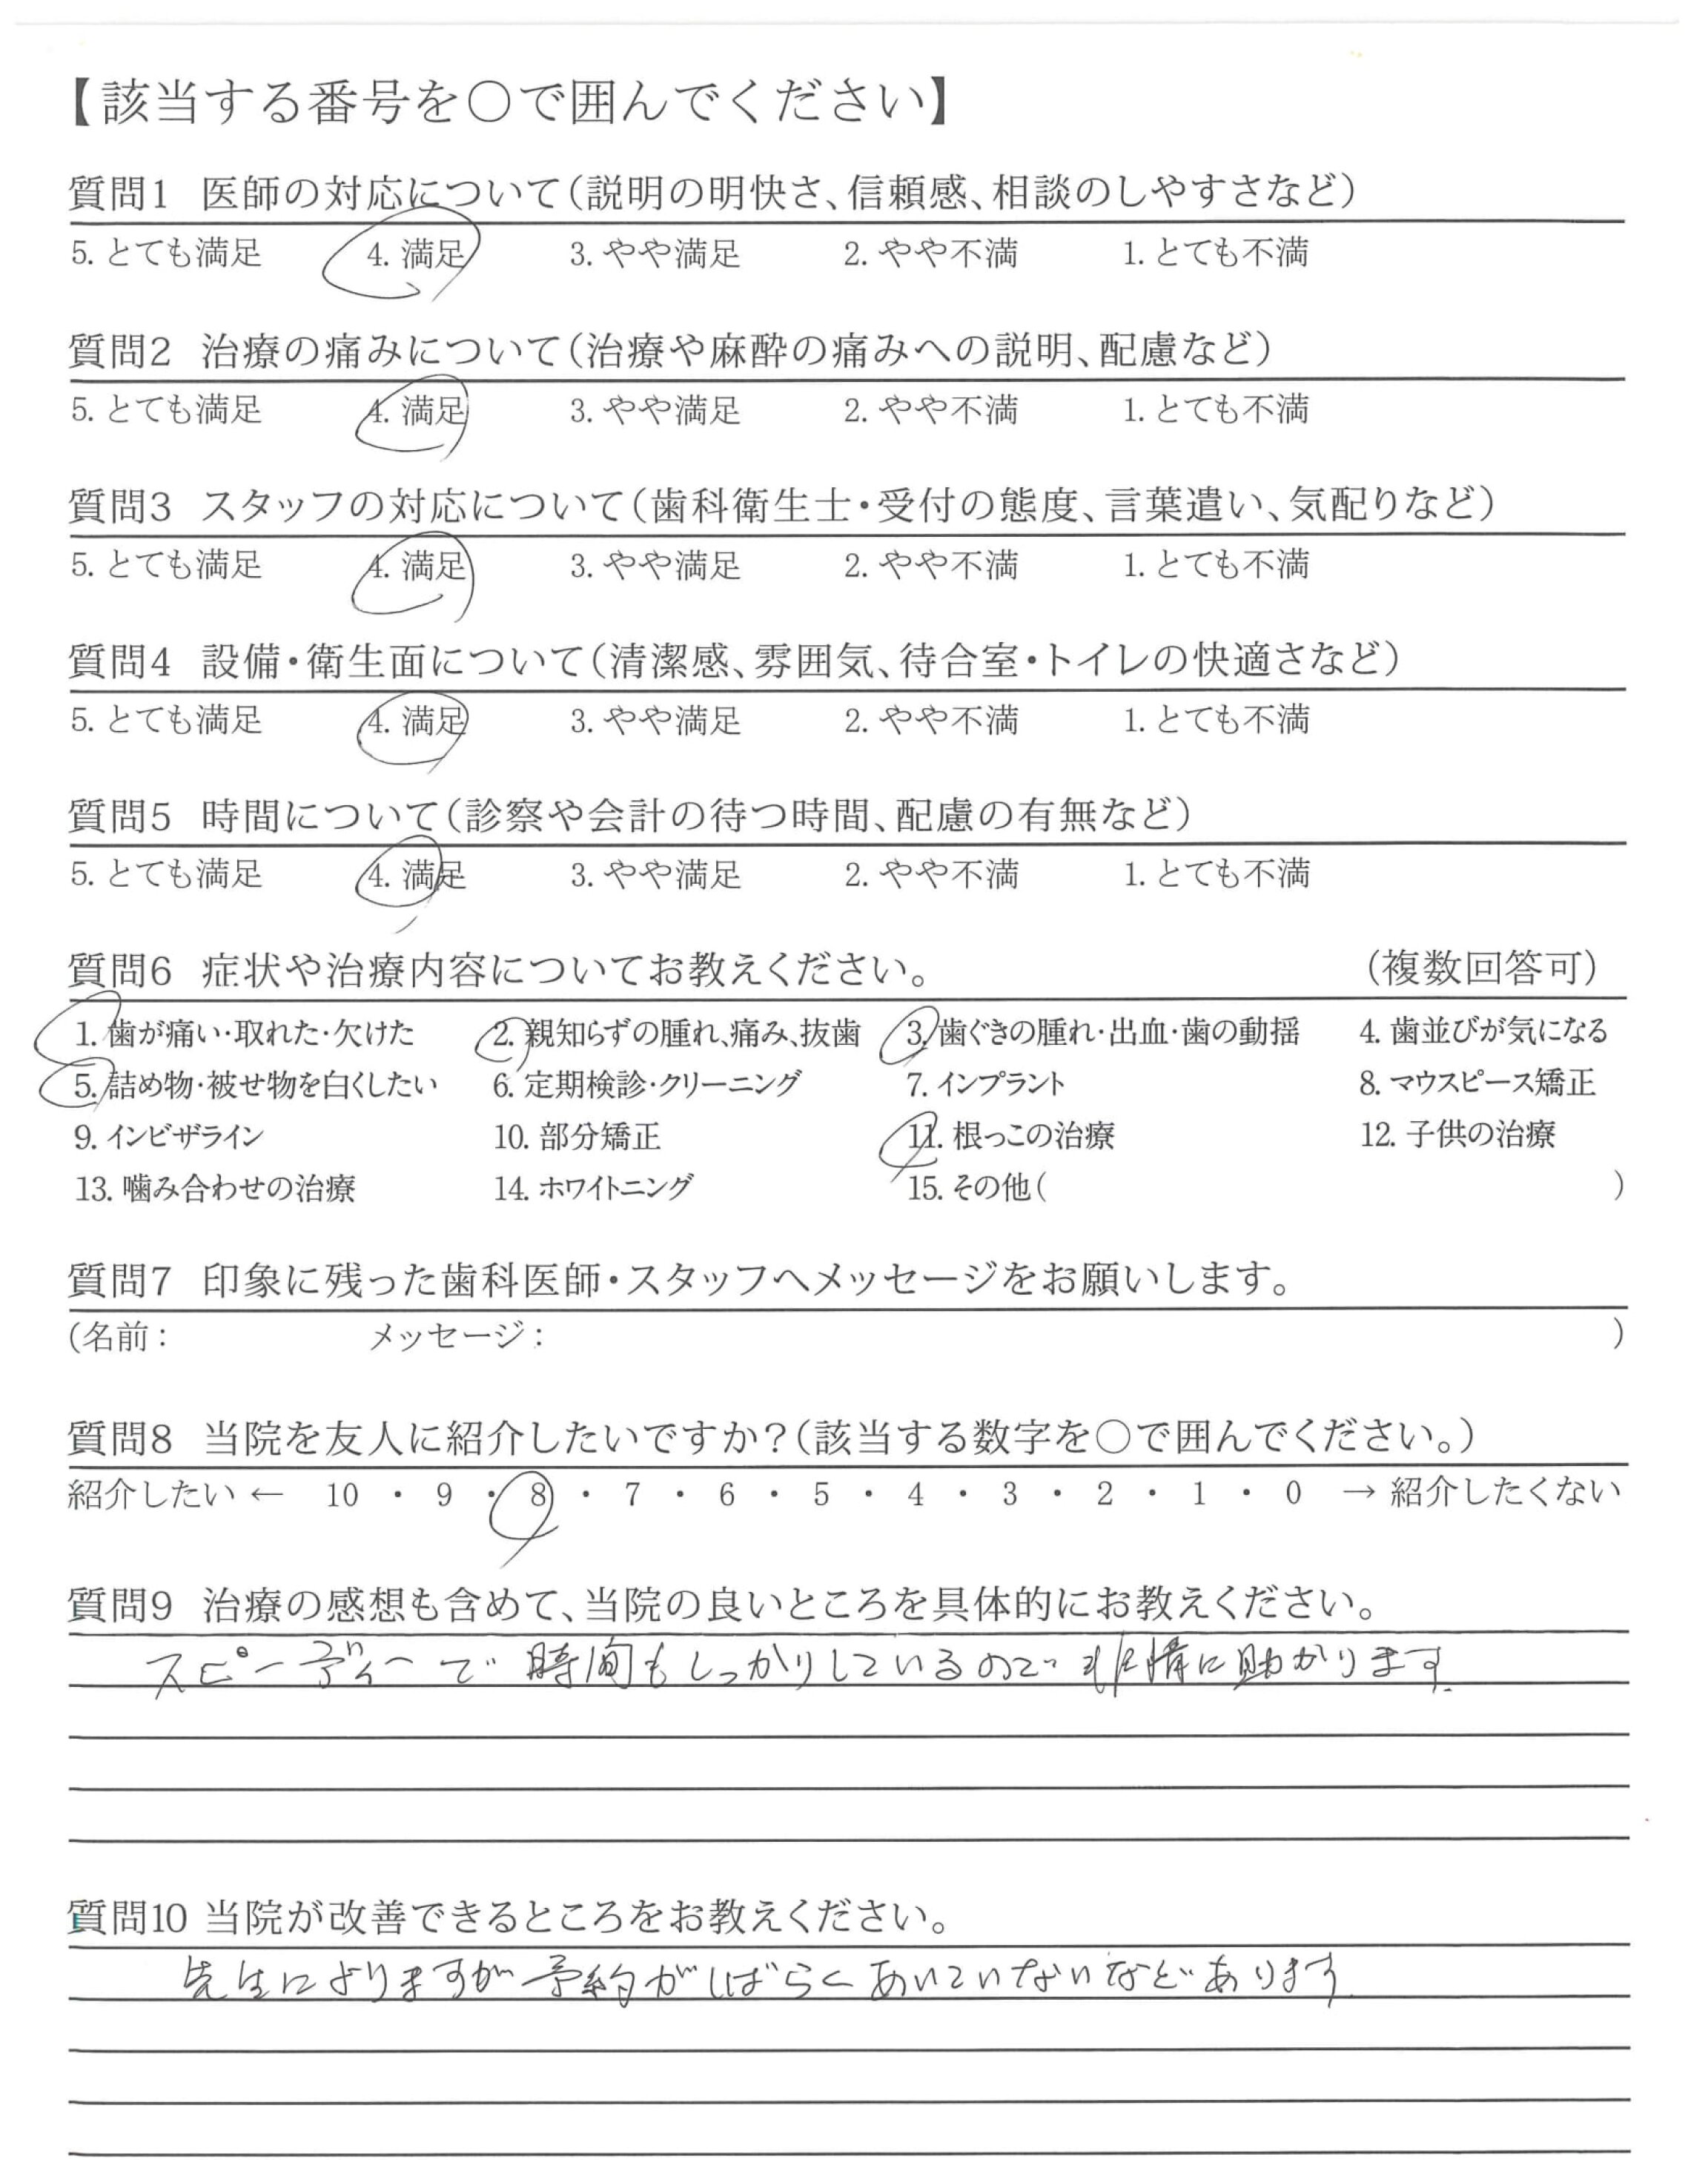 【該当する番号を○で囲んでください】
質問1 医師の対応について(説明の明快さ、信頼感、相談のしやすさなど)
5. とても満足 4. 満足 3. やや満足 2. やや不満 1. とても不満
質問2 治療の痛みについて(治療や麻酔の痛みへの説明、配慮など)
5. とても満足 4. 満足 3. やや満足 2. やや不満 1. とても不満
質問3 スタッフの対応について(歯科衛生士・受付の態度、言葉遣い、気配りなど)
5. とても満足 4. 満足 3. やや満足 2. やや不満 1. とても不満
質問4 設備・衛生面について(清潔感、雰囲気、待合室・トイレの快適さなど)
5. とても満足 4. 満足 3. やや満足 2. やや不満 1. とても不満
質問5 時間について(診察や会計の待つ時間、配慮の有無など)
5. とても満足 4. 満足 3. やや満足 2. やや不満 1. とても不満
質問6 症状や治療内容についてお教えください。 (複数回答可)
1. 歯が痛い・取れた・欠けた 2. 親知らずの腫れ、痛み、抜歯 3. 歯ぐきの腫れ・出血・歯の動揺 4. 歯並びが気になる
5. 詰め物・被せ物を白くしたい 6. 定期検診・クリーニング 7. インプラント 8. マウスピース矯正
9. インビザライン 10. 部分矯正 11. 根っこの治療 12. 子供の治療
13. 噛み合わせの治療 14. ホワイトニング 15. その他( )
質問7 印象に残った歯科医師・スタッフへメッセージをお願いします。
(名前: メッセージ: )
質問8 当院を友人に紹介したいですか?(該当する数字を○で囲んでください。)
紹介したい ← 10 ・ 9 ・ 8 ・ 7 ・ 6 ・ 5 ・ 4 ・ 3 ・ 2 ・ 1 ・ 0 → 紹介したくない
質問9 治療の感想も含めて、当院の良いところを具体的にお教えください。
スピーディーで 時間もしっかりしているので 非情に助かります
質問10 当院が改善できるところをお教えください。
先生によりますが 予約がしばらくあいていないなどあります